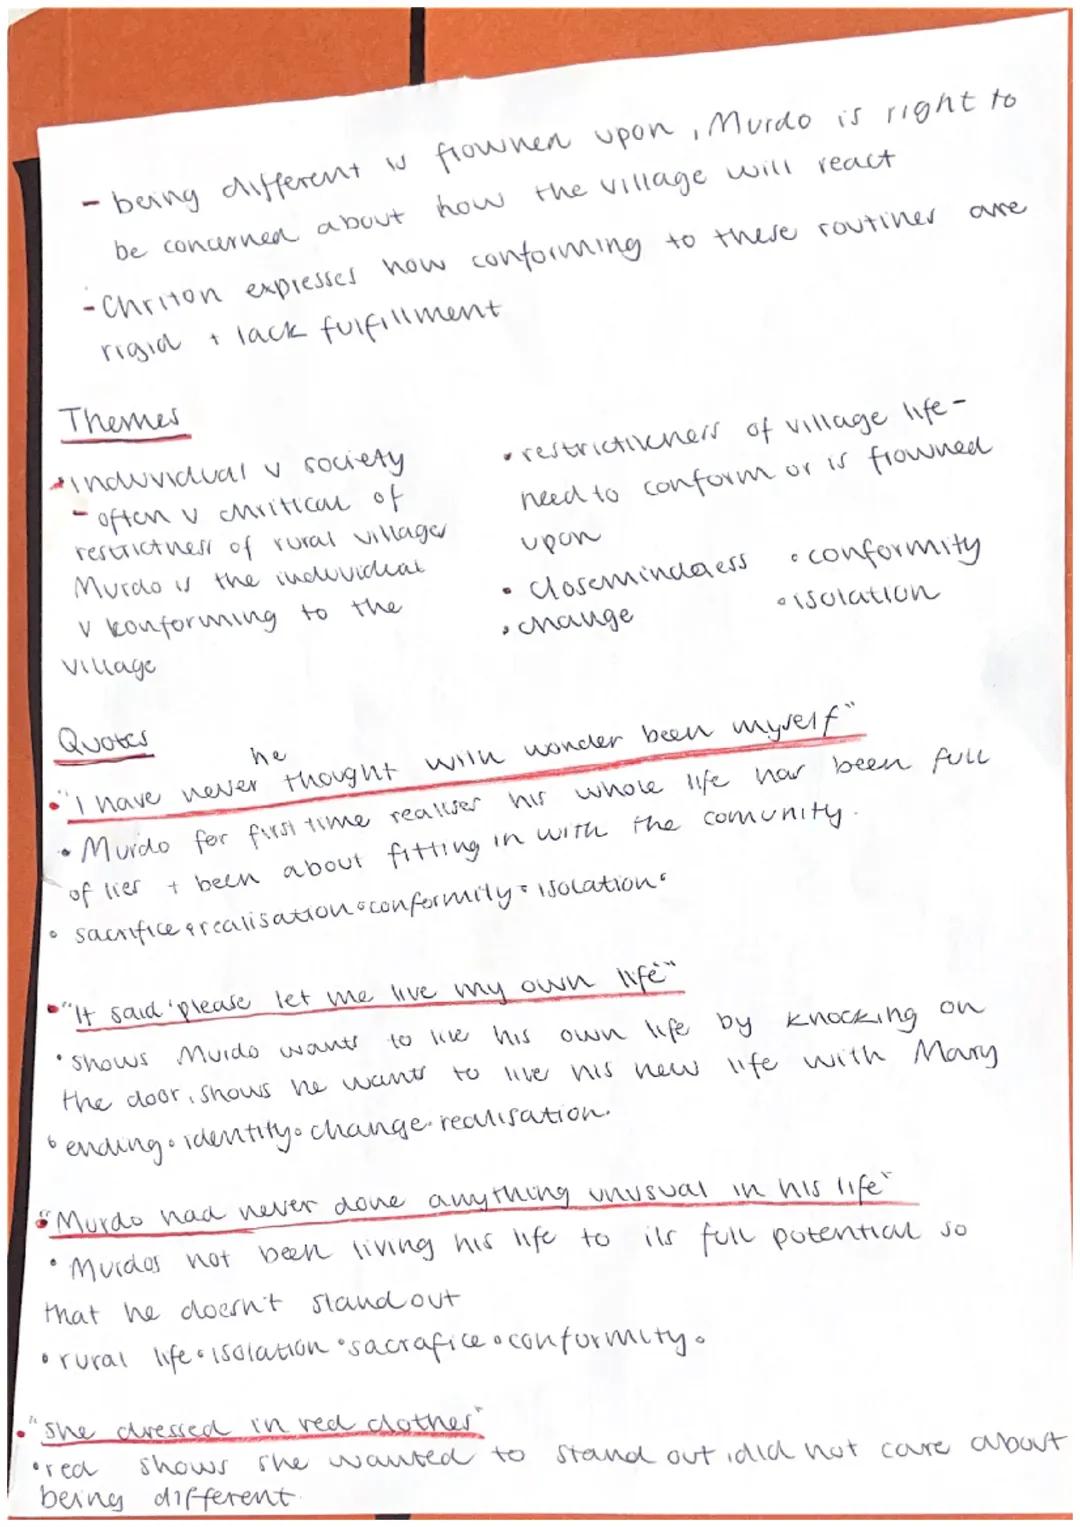 - being different is frowned upon, Murdo is right to
be concerned about how the village will react
- Chriton expresses how conforming to these routines are
rigid + lack fulfillment
Themes
• individual v society
- often v chritical of
restrictness of rural villages
Murdo is the individual
v konforming to the
village
• restrictiveness of village life -
need to conform or is frowned
upon
• closemindaess • conformity
• change • isolation
Quotes
he
• "I have never thought wiln wonder been myself"
• Murdo for first time realises his whole life has been full
of lies + been about fitting in with the comunity.
• sacrifice • realisation • conformity • isolation •
• "It said 'please let me live my own life'"
• shows Murdo wants to live his own life by knocking on
the door, shows he wants to live his new life with Mary
• ending • identity • change • realisation.
• "Murdo had never done anything unusual in his life"
• Murdos not been living his life to its full potential so
that he doesn't stand out
• rural life • isolation • sacrafice • conformity •
• "she dressed in red clothes"
• red shows she wanted to stand out, did not care about
being different.